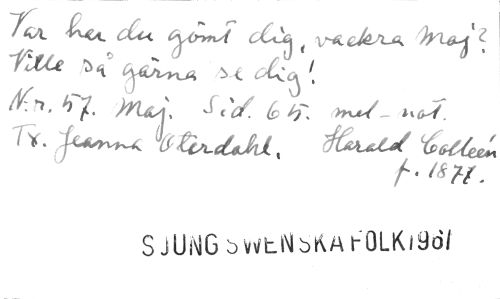 Var har du gömt dig, vackra Maj?
Ville så gärna se dig!
N:r. 57. Maj. Sid. 65. mel-not.
Tx. Jeanna Oterdahl. Harald Colleén
f. 1877.
SJUNG SWENSKA FOLK 1961